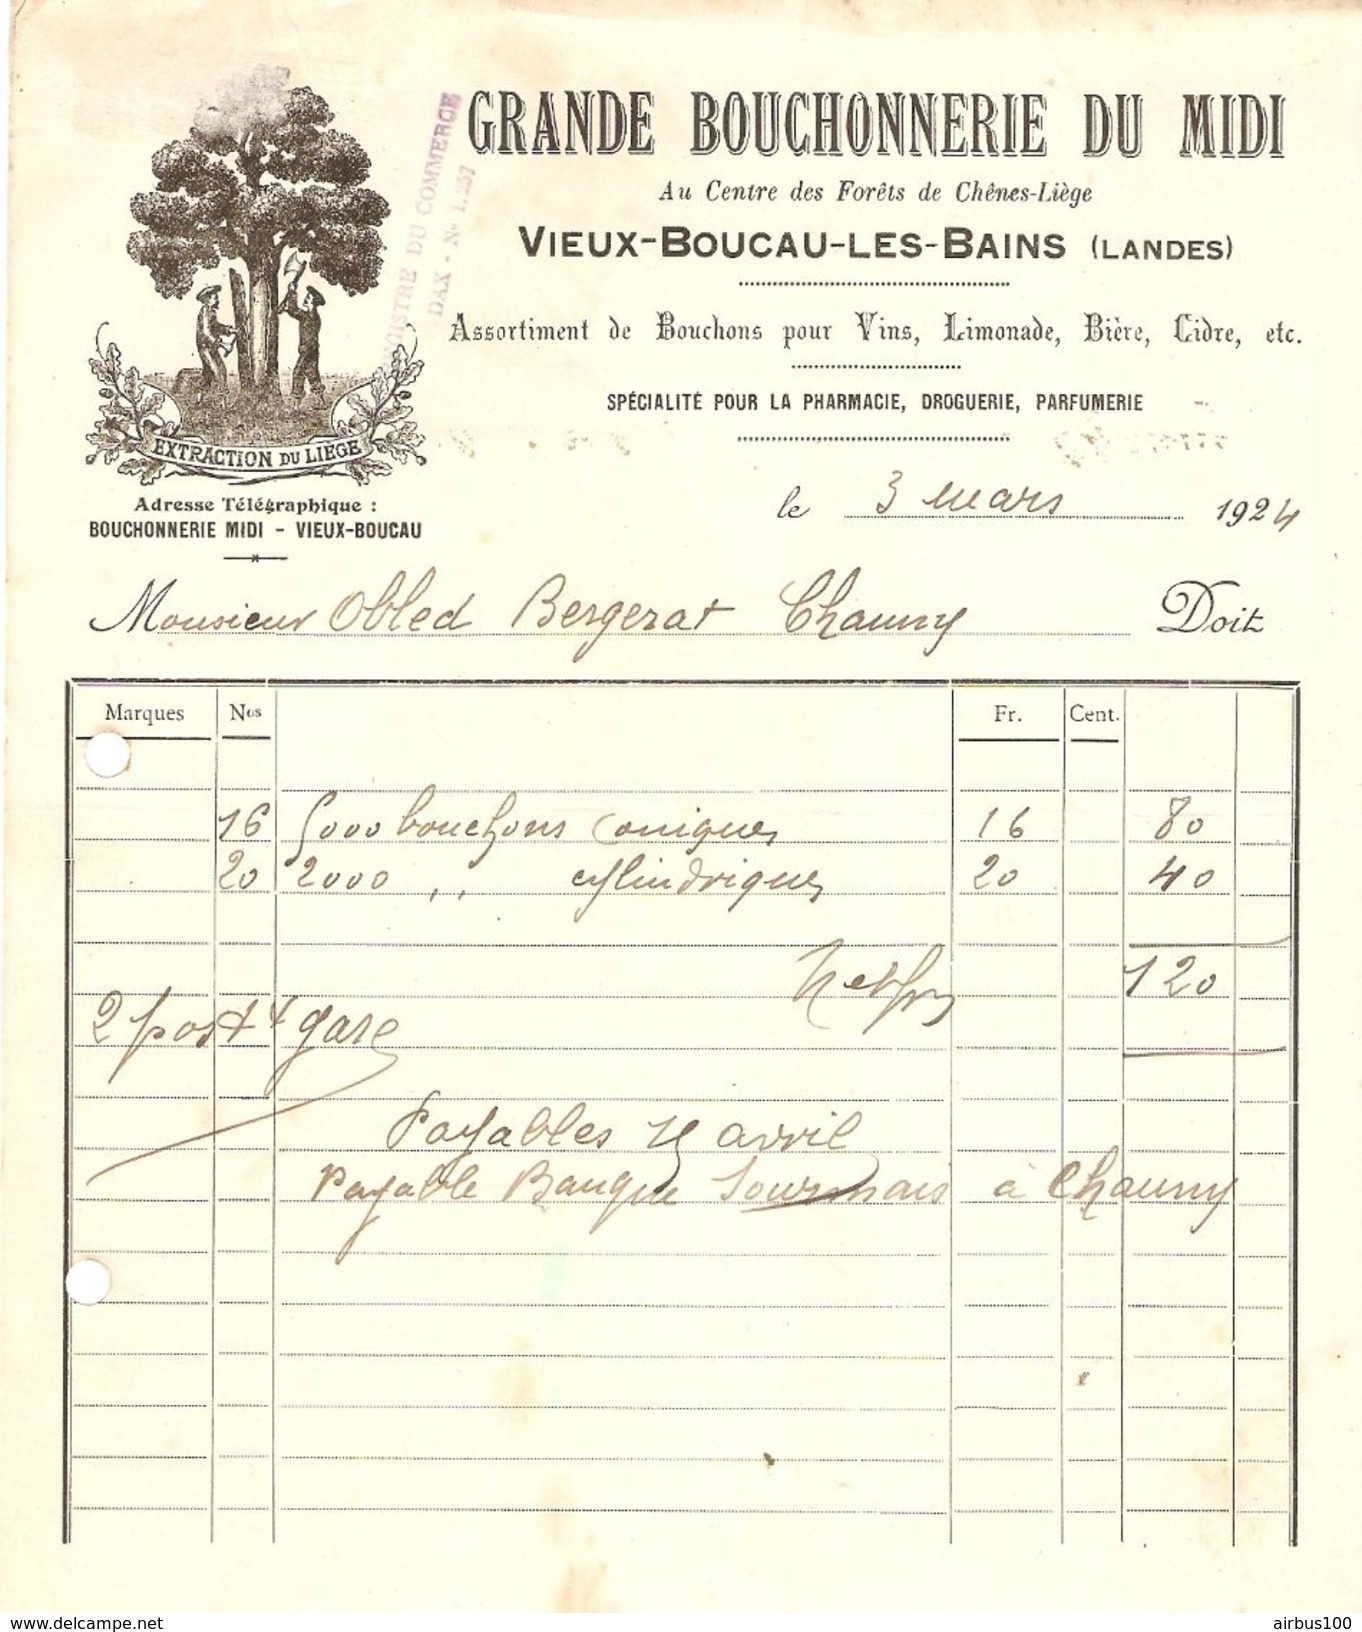 GRANDE BOUCHONNERIE DU MIDI
Au Centre des Forêts de Chênes-Liège
VIEUX-BOUCAU-LES-BAINS (LANDES)
REGISTRE DU COMMERCE
DAX - No 1.257
Assortiment de Bouchons pour Vins, Limonade, Bière, Cidre, etc.
SPÉCIALITÉ POUR LA PHARMACIE, DROGUERIE, PARFUMERIE
EXTRACTION DU LIÈGE
Adresse Télégraphique :
BOUCHONNERIE MIDI - VIEUX-BOUCAU
le 3 mars 1924
Monsieur Obled Bergerat Chauny Doit
Marques Nos Fr. Cent.
16 5000 bouchons coniques 16 80
20 2000 ,, cylindriques 20 40
Net frs 120
2 post x gare
Payables avril
Payable Banque Journais à Chauny
delcampe.net
airbus100